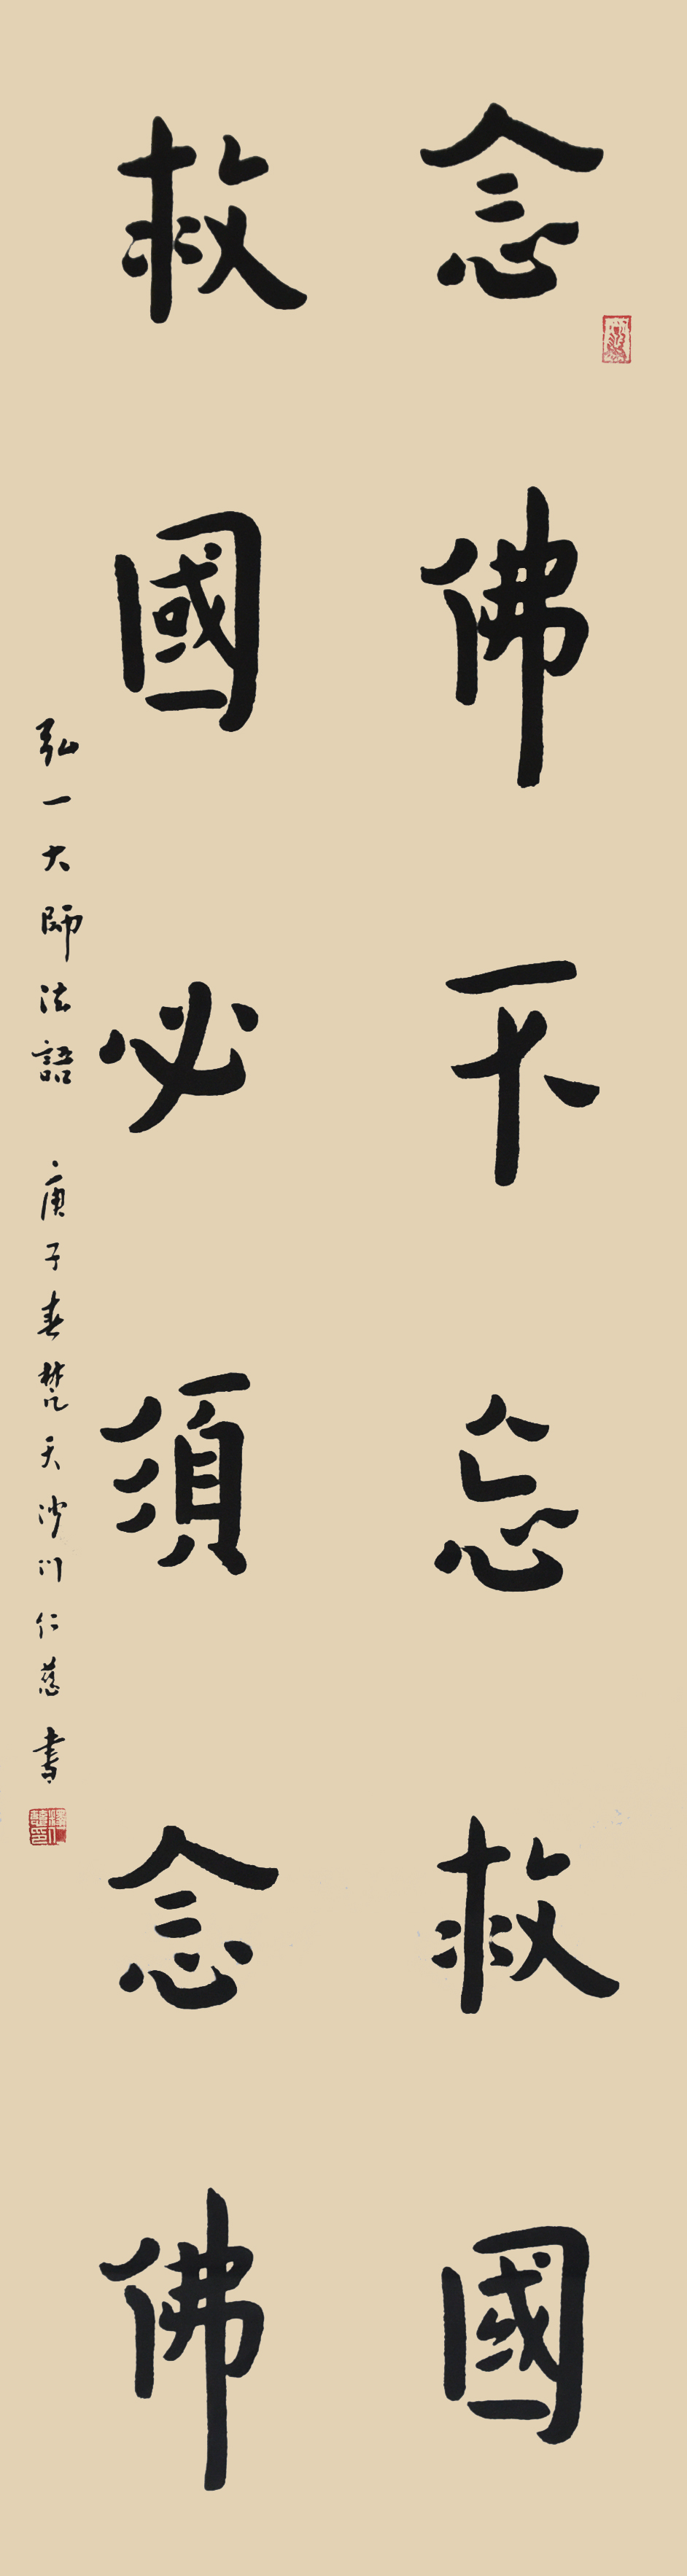 念佛不忘救國
救國必須念佛
弘一大師法語 庚子春梵天沙门仁慈書